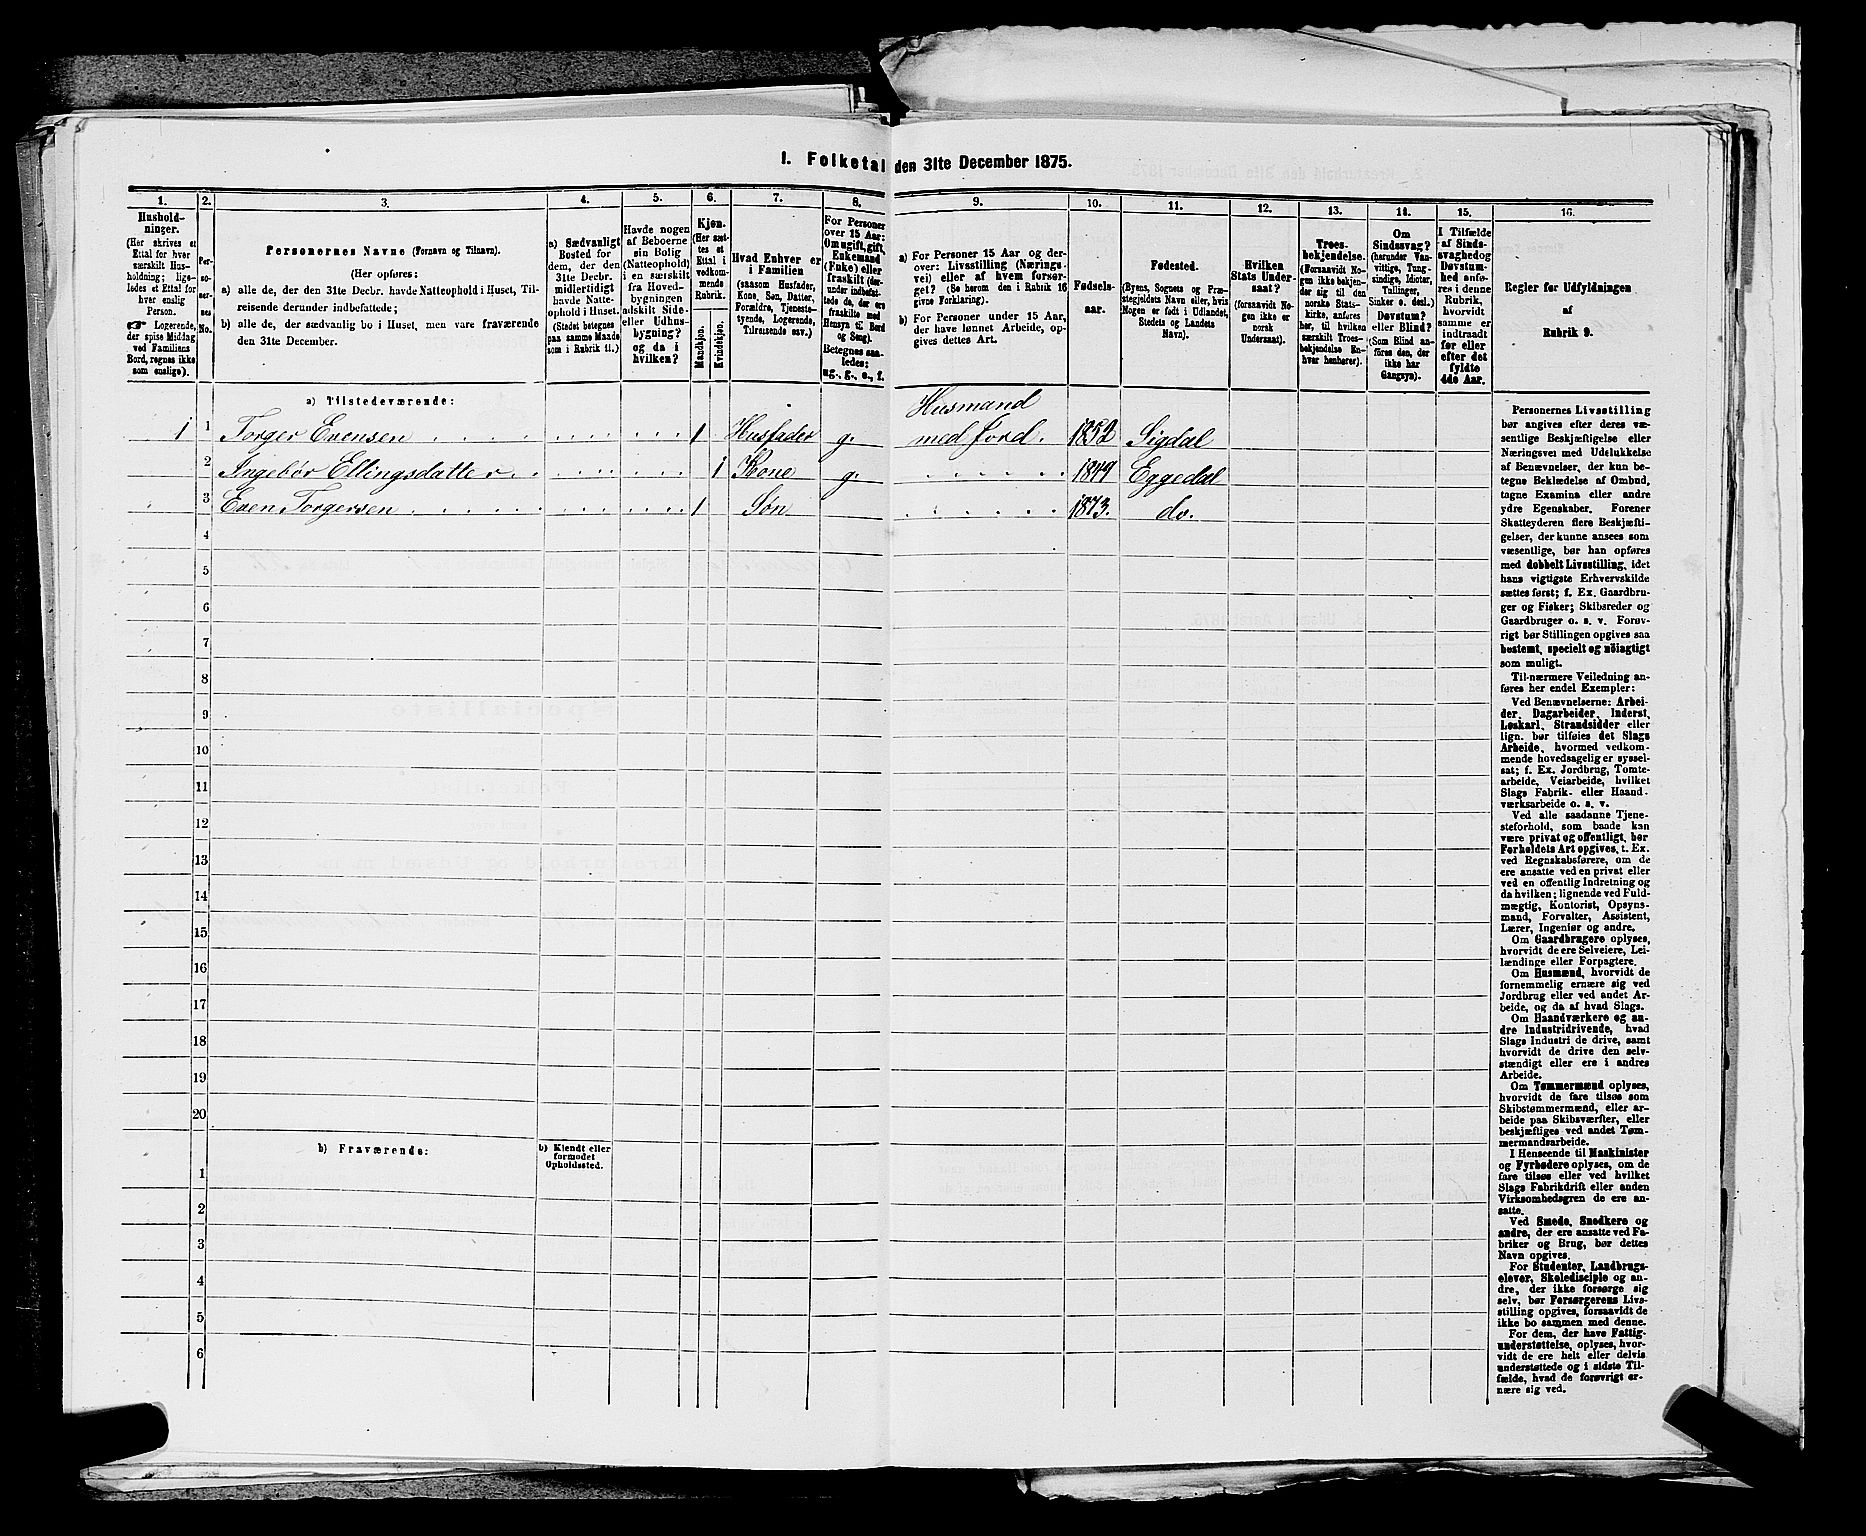 1. Folketal den 31te December 1875.
1. 2. 3. 4. 5. 6. 7. 8. 9. 10. 11. 12. 13. 14. 15. 16.
Hushold-
ninger.
(Her skrives et
Ettal for hver
særskilt Hus-
holdning; lige-
ledes et Ettal for
hver enslig
Person.
☞ Logerende,
der spise Middag
ved Familiens
Bord, regnes ikke
som enslige).
Per-
so-
ner-
nes
No.
Personernes Navne (Fornavn og Tilnavn).
(Her opføres:
a) alle de, der den 31te Decbr. havde Natteophold i Huset, Til-
reisende derunder indbefattede;
b) alle de, der sædvanlig bo i Huset, men vare fraværende
den 31te December.
a) Sædvanligt
Bosted for
dem, der den
31te Decbr.
midlertidigt
havde Natte-
ophold i Huset.
(Stedet betegnes
paa samme Maade
som i Rubrik 11.)
Havde nogen
af Beboerne
sin Bolig
(Natteophold)
i en særskilt
fra Hoved-
bygningen
adskilt Side-
eller Udhus-
bygning?
og da i
hvilken?
Kjøn.
(Her sæt-
tes et
Ettal i
vedkom-
mende
Rubrik.
Mandkjøn.
Kvindekjøn.
Hvad Enhver er
i Familien
(saasom Husfader,
Kone, Søn, Datter,
Forældre, Tjeneste-
tyende, Logerende,
Tilreisende osv.)
For Personer
over 15 Aar:
Om ugift, gift,
Enkemand
(Enke) eller
fraskilt (der-
under indbefat-
tede de, der ere
fraskilte med
Hensyn til Bord
og Seng).
Betegnes saa-
ledes:
ug., g., e., f.
a) For Personer 15 Aar og der-
over: Livsstilling (Nærings-
vei) eller af hvem forsør-
get? (Se herom den i Rubrik 16
givne Forklaring).
b) For Personer under 15 Aar,
der have lønnet Arbeide, op-
gives dettes Art.
Fødsels-
aar.
Fødested.
(Byens, Sognets og Præ-
stegjeldets Navn eller, hvis
Nogen er født i Udlandet,
Stedets og Landets
Navn).
Hvilken
Stats Under-
saat?
(forsaavidt No-
gen ikke er
norsk
Undersaat).
Troes-
bekjendelse.
(Forsaavidt No-
gen ikke bekjen-
der sig til den
norske Stats-
kirke, anføres
her, til hvilken
særskilt Troes-
bekjendelse En-
hver henhører).
Om
Sindssvag?
(herunder Van-
vittige, Tung-
sindige, Idioter,
Tullinger,
Sinker o. desl.)
Døvstum?
eller Blind?
(Som Blind an-
føres den, der
ikke har
Gangsyn).
I Tilfælde
af Sinds-
svaghed og
Døvstum-
hed anfø-
res i denne
Rubrik,
hvorvidt
samme er
indtraadt
før eller
efter det
fyldte
4de Aar.
Regler for Udfyldningen
af
Rubrik 9.
a) Tilstedeværende:
Husmand
1 1 Torger Evensen 1 Husfader g. med Jord. 1852 Sigdal
2 Ingebør Ellingsdatter 1 Kone g. 1849 Eggedal
3 Even Torgersen 1 Søn 1873. do.
4
5
6
7
8
9
10
11
12
13
14
15
16
17
18
19
20
b) Fraværende:
b) Kjendt eller
formodet
Opholdssted.
1
2
3
4
5
6
Personernes Livsstilling
bør angives efter deres væ-
sentlige Beskjæftigelse eller
Næringsvei med Udelukkelse
af Benævnelser, der kun be-
tegne Beklædelse af Ombud,
tagne Examina eller andre
ydre Egenskaber. Forener
Skatteyderen flere Beskjæfti-
gelser, der kunne ansees som
væsentlige, bør han opføres
med dobbelt Livsstilling, idet
hans vigtigste Erhvervskilde
sættes først; f. Ex. Gaardbru-
ger og Fisker; Skibsreder og
Gaardbruger o. s. v. Forøv-
rigt bør Stillingen opgives saa
bestemt, specielt og nöiagtigt
som muligt.
Til nærmere Veiledning an-
føres her endel Exempler:
Ved Benævnelserne: Arbei-
der, Dagarbeider, Inderst,
Løskarl, Strandsidder eller
lign. bør tilføies det Slags
Arbeide, hvormed vedkom-
mende hovedsagelig er syssel-
sat; f. Ex. Jordbrug, Tomte-
arbeide, Veiarbeide, hvilket
Slags Fabrik- eller Haand-
værksarbeide o. s. v.
Ved alle saadanne Tjene-
steforhold, som baade kan
være privat og offentligt, bør
Forholdets Art opgives, f. Ex.
ved Regnskabsførere, om de
ere ansatte ved en privat eller
ved en offentlig Indretning og
da hvilken; lignende ved Fuld-
mægtig, Kontorist, Opsyns-
mand, Forvalter, Assistent,
Lærer, Ingeniør og andre.
Om Gaardbrugere oplyses,
hvorvidt de ere Selveiere, Lei-
lændinge eller Forpagtere.
Om Husmænd, hvorvidt de
fornemmelig ernære sig ved
Jordbrug eller ved andet Ar-
beide, og da af hvad Slags.
Om Haandværkere og an-
dre Industridrivende, hvad
Slags Industri de drive, samt
hvorvidt de drive den selv-
stændigt eller ere i andres
Arbeide.
Om Tømmermænd oplyses,
hvorvidt de fare tilsøs som
Skibstømmermænd, eller ar-
beide paa Skibsværfter, eller
beskjæftiges ved andet Tøm-
mermandsarbeide.
I Henseende til Maskinister
og Fyrbødere oplyses, om de
fare tilsøs eller ved hvilket
Slags Fabrikdrift eller anden
Virksomhedsgren de ere an-
satte.
Ved Smede, Snedkere og
andre, der ere ansatte ved Fa-
briker og Brug, bør dettes
Navn opgives.
For Studenter, Landbrugs-
elever, Skoledisciple og an-
dre, der ikke forsørge sig
selv, bør Forsørgerens Livs-
stilling opgives, forsaavidt de
ikke bo sammen med denne.
For dem, der have Fattig-
understøttelse, oplyses, hvor-
vidt de ere helt eller delvis
understøttede og i sidste Til-
fælde, hvad de forøvrigt er-
nære sig ved.